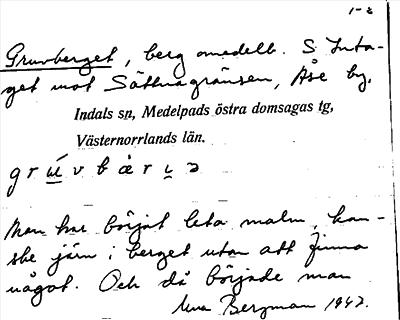 1-2
Gruvberget, berg omedelb. S Inta-
get mot Sättnagränsen, Åse by.
Indals sn, Medelpads östra domsagas tg,
Västernorrlands län.
g r ú v b æ r ɩ ə
Man har börjat leta malm, kan-
ske järn i berget utan att finna
något. Och då började man
Bergman 1942.